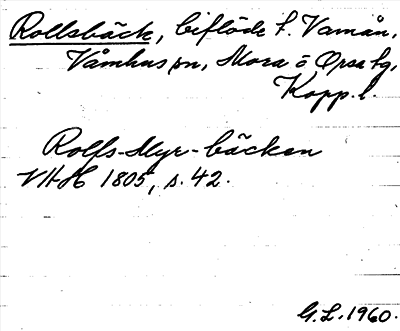 Rollsbäck, biflöde t. Vamån,
Våmhus sn, Mora o Orsa tg,
Kopp. l.
Rolfs-Myr-bäcken
VHH 1805, s. 42.
G.L. 1960.